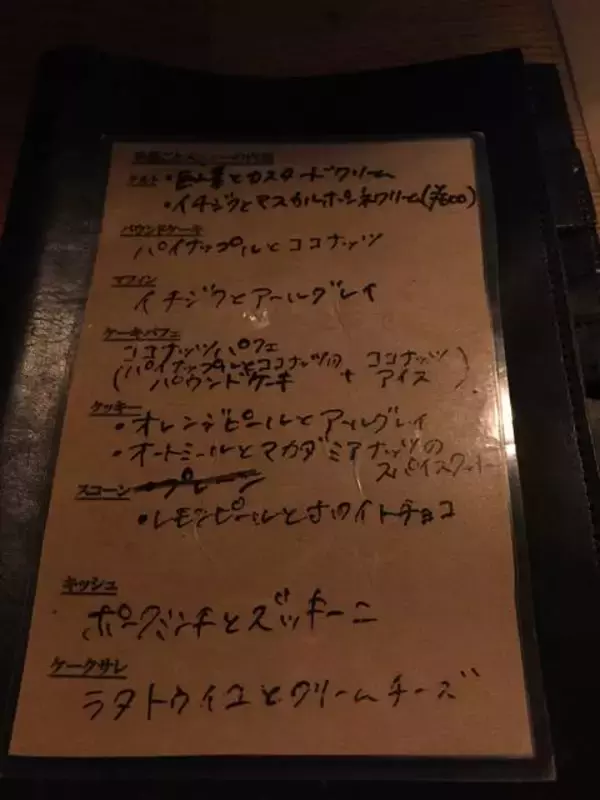 タルト ・巨峰とカスタードクリーム
・イチジクとマスカルポーネクリーム(¥600)
パウンドケーキ
パイナップルとココナッツ
マフィン
イチジクとアールグレイ
ケーキパフェ
ココナッツパフェ
(パイナップルとココナッツの パウンドケーキ + ココナッツアイス)
クッキー
・オレンジピールとアールグレイ
・オートミールとマカダミアナッツの
スパイスクッキー
スコーン プレーン
・レモンピールとホワイトチョコ
キッシュ
ポークパンチとズッキーニ
ケークサレ
ラタトゥイユとクリームチーズ